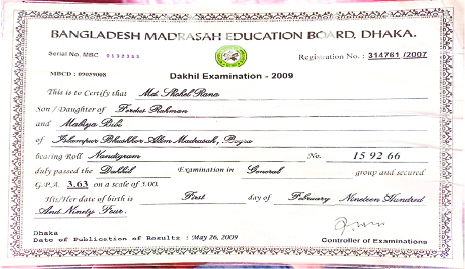 BANGLADESH MADRASAH EDUCATION BOARD, DHAKA.
Serial No. MBC
Registration No. : 314761 /2007
MBCD : 0909008
Dakhil Examination - 2009
This is to Certify that Md. Shohel Rana
Son / Daughter of Ferdus Rahman
and Mabiya Bibi
of Islampur Bhushkhor Alim Madrasah, Bogra
bearing Roll Nandigram No. 15 92 66
duly passed the Dakhil Examination in General group and secured
G.P.A. 3.63 on a scale of 5.00.
His/Her date of birth is First day of February Nineteen Hundred
And Ninety Four.
Dhaka
Date of Publication of Results : May 26, 2009
Controller of Examinations